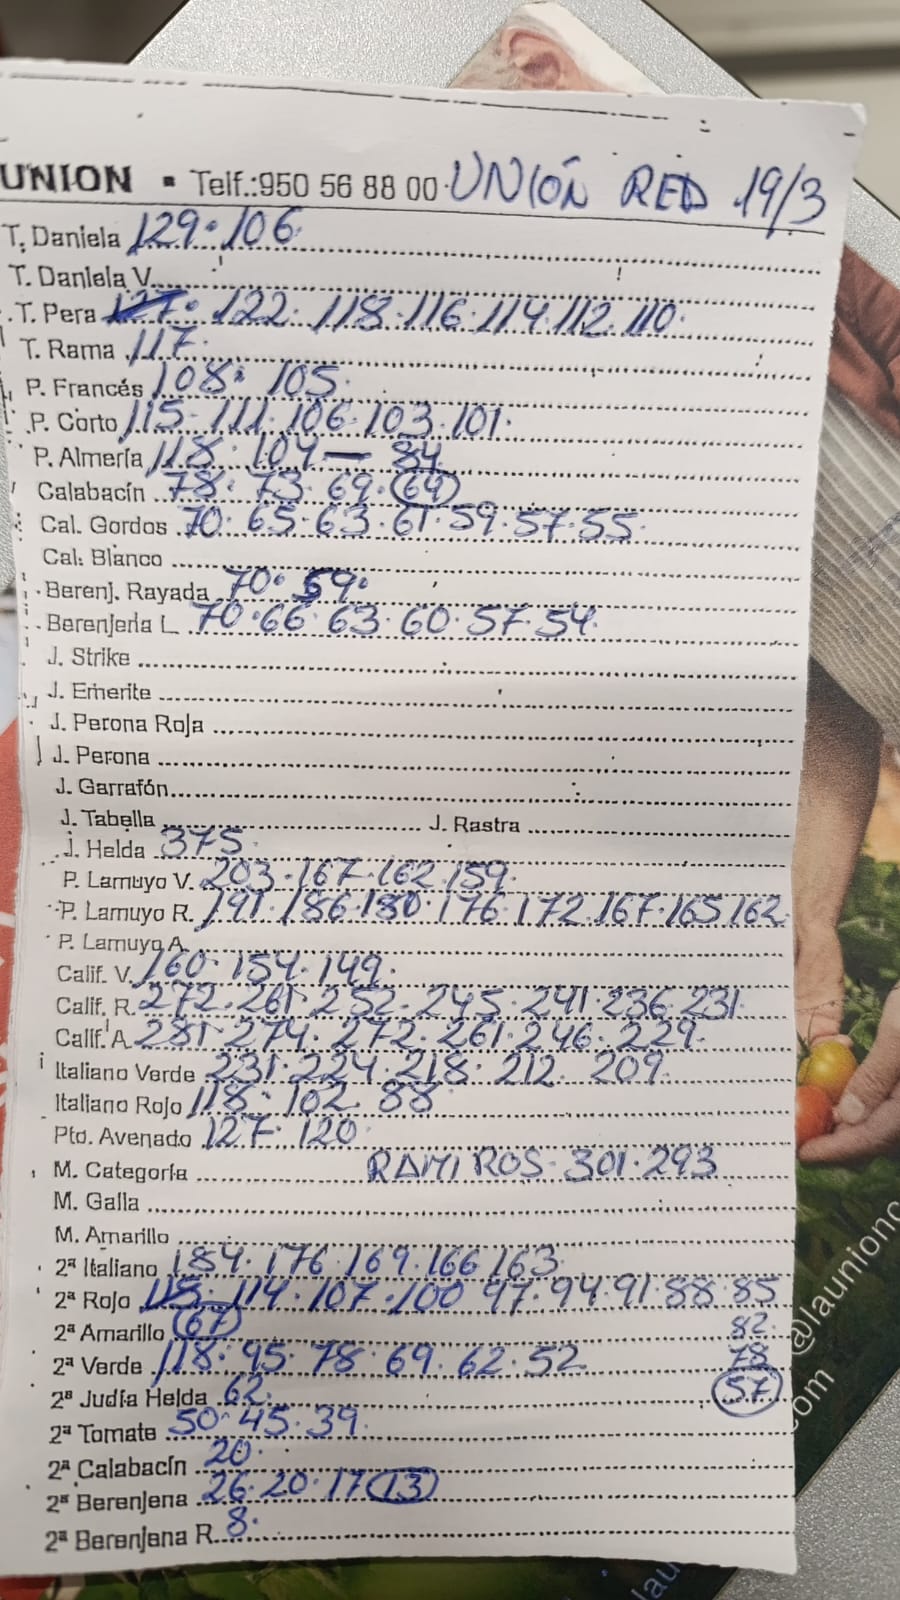 UNION ▪ Telf.:950 56 88 00 · UNIÓN RED 19/3
T. Daniela 129 · 106
T. Daniela V.
T. Pera 127 · 122 · 118 · 116 · 114 · 112 · 110 ·
T. Rama 117 ·
P. Francés 108 · 105
P. Corto 115 · 111 · 106 · 103 · 101 ·
P. Almería 118 · 104 — 84
Calabacín 78 · 73 · 69 · 64
Cal. Gordos 70 · 65 · 63 · 61 · 59 · 57 · 55 ·
Cal. Blanco
Berenj. Rayada 70 · 59 ·
Berenjena L. 70 · 66 · 63 · 60 · 57 · 54 ·
J. Strike
J. Emerite
J. Perona Roja
J. Perona
J. Garrafón
J. Tabella J. Rastra
J. Helda 375
P. Lamuyo V. 203 · 167 · 162 · 159 ·
P. Lamuyo R. 191 · 186 · 180 · 176 · 172 · 167 · 165 · 162
P. Lamuyo A.
Calif. V. 160 · 154 · 149 ·
Calif. R. 272 · 261 · 252 · 245 · 241 · 236 · 231
Calif. A. 281 · 274 · 272 · 261 · 246 · 229 ·
Italiano Verde 231 · 224 · 218 · 212 · 209 ·
Italiano Rojo 118 · 102 · 88
Pto. Avenado 127 · 120
M. Categoría RAMIROS · 301 · 293
M. Galia
M. Amarillo
2ª Italiano 184 · 176 · 169 · 166 · 163
2ª Rojo 115 · 114 · 107 · 100 · 97 · 94 · 91 · 88 · 85
2ª Amarillo 67 82 ·
2ª Verde 118 · 95 · 78 · 69 · 62 · 52 78
2ª Judía Helda 62 · 57
2ª Tomate 50 · 45 · 39 ·
2ª Calabacín 20 ·
2ª Berenjena 26 · 20 · 17 13
2ª Berenjena R. 8 ·
@launionc
com
lau